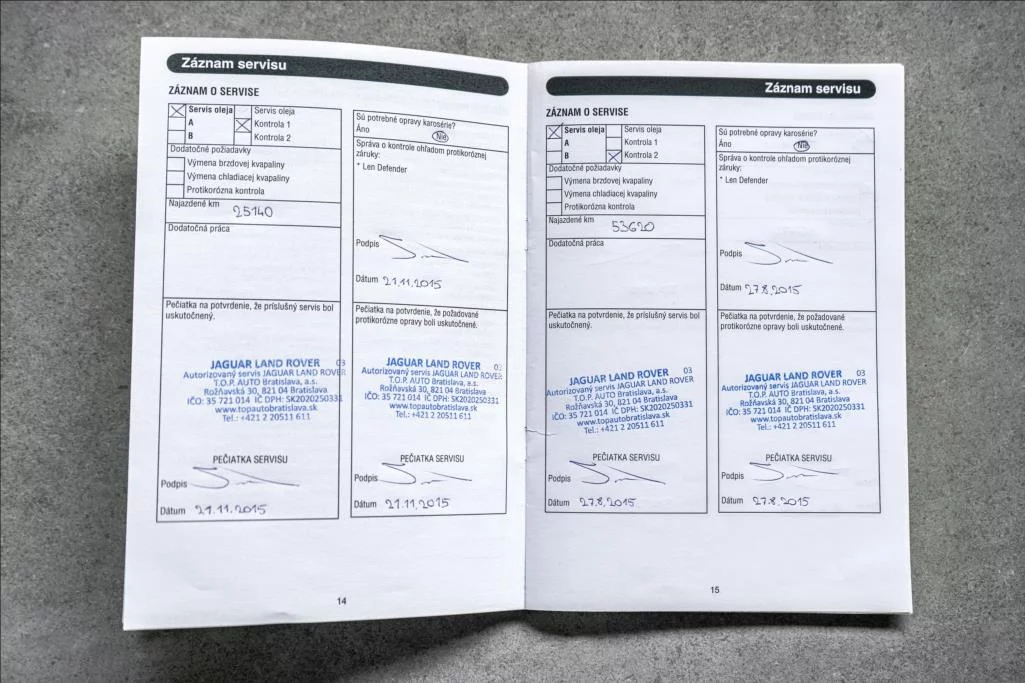 Záznam servisu
ZÁZNAM O SERVISE
Servis oleja Servis oleja
A Kontrola 1
B Kontrola 2
Dodatočné požiadavky
Výmena brzdovej kvapaliny
Výmena chladiacej kvapaliny
Protikorózna kontrola
Najazdené km
25140
Dodatočná práca
Pečiatka na potvrdenie, že príslušný servis bol
uskutočnený.
JAGUAR LAND ROVER 03
Autorizovaný servis JAGUAR LAND ROVER
T.O.P. AUTO Bratislava, a.s.
Rožňavská 30, 821 04 Bratislava
IČO: 35 721 014 IČ DPH: SK2020250331
www.topautobratislava.sk
Tel.: +421 2 20511 611
PEČIATKA SERVISU
Podpis
Dátum 21.11.2015
Sú potrebné opravy karosérie?
Áno Nie
Správa o kontrole ohľadom protikoróznej
záruky:
* Len Defender
Podpis
Dátum 21.11.2015
Pečiatka na potvrdenie, že požadované
protikorózne opravy boli uskutočnené.
JAGUAR LAND ROVER 03
Autorizovaný servis JAGUAR LAND ROVER
T.O.P. AUTO Bratislava, a.s.
Rožňavská 30, 821 04 Bratislava
IČO: 35 721 014 IČ DPH: SK2020250331
www.topautobratislava.sk
Tel.: +421 2 20511 611
PEČIATKA SERVISU
Podpis
Dátum 21.11.2015
14
Záznam servisu
ZÁZNAM O SERVISE
Servis oleja Servis oleja
A Kontrola 1
B Kontrola 2
Dodatočné požiadavky
Výmena brzdovej kvapaliny
Výmena chladiacej kvapaliny
Protikorózna kontrola
Najazdené km
53620
Dodatočná práca
Pečiatka na potvrdenie, že príslušný servis bol
uskutočnený.
JAGUAR LAND ROVER 03
Autorizovaný servis JAGUAR LAND ROVER
T.O.P. AUTO Bratislava, a.s.
Rožňavská 30, 821 04 Bratislava
IČO: 35 721 014 IČ DPH: SK2020250331
www.topautobratislava.sk
Tel.: +421 2 20511 611
PEČIATKA SERVISU
Podpis
Dátum 27.8.2015
Sú potrebné opravy karosérie?
Áno Nie
Správa o kontrole ohľadom protikoróznej
záruky:
* Len Defender
Podpis
Dátum 27.8.2015
Pečiatka na potvrdenie, že požadované
protikorózne opravy boli uskutočnené.
JAGUAR LAND ROVER 03
Autorizovaný servis JAGUAR LAND ROVER
T.O.P. AUTO Bratislava, a.s.
Rožňavská 30, 821 04 Bratislava
IČO: 35 721 014 IČ DPH: SK2020250331
www.topautobratislava.sk
Tel.: +421 2 20511 611
PEČIATKA SERVISU
Podpis
Dátum 27.8.2015
15